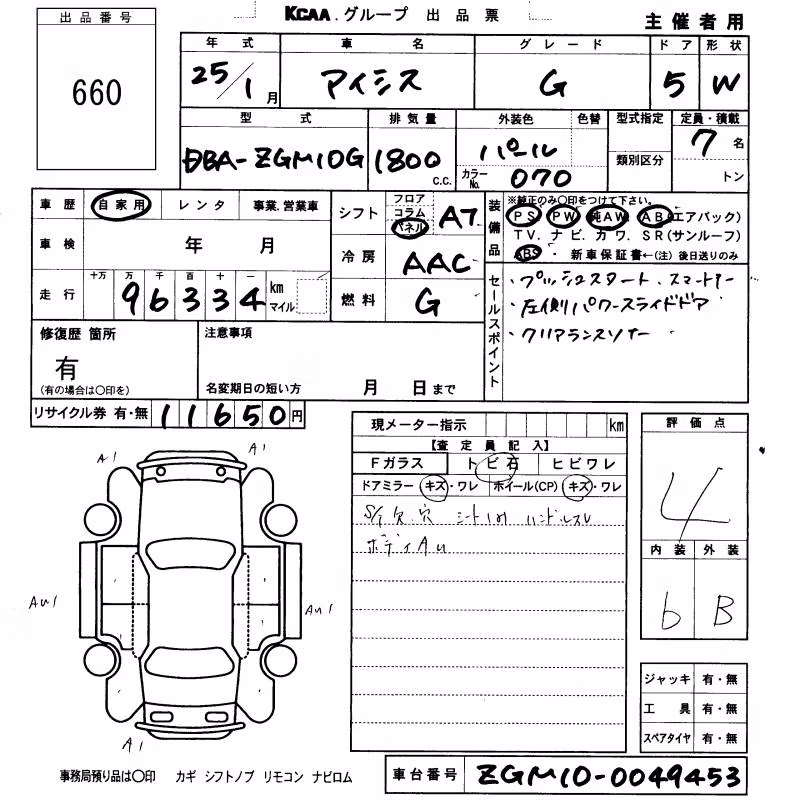 KCAA.グループ 出品票
主催者用
出品番号
660
年式 車名 グレード ドア 形状
25/1月 アイシス G 5 W
型式 排気量 外装色 色替 型式指定 定員・積載
DBA-ZGM10G 1800 c.c. パール 7名
カラーNo. 070 類別区分 トン
車歴 自家用 レンタ 事業.営業車
シフト フロア コラム パネル AT
装備品
※純正のみ〇印をつけて下さい。
PS PW 純AW AB(エアバック)
TV. ナビ. カワ. SR(サンルーフ)
ABS ・ 新車保証書←(注)後日送りのみ
車検 年 月
冷房 AAC
走行 十万 万 千 百 十 一
96334 km マイル
燃料 G
セールスポイント
・プッシュスタート、スマートキー
・左側パワースライドドア
・クリアランスソナー
修復歴 箇所
有
(有の場合は〇印を)
注意事項
名変期日の短い方 月 日まで
リサイクル券 有・無 11650円
現メーター指示 km
【査定員記入】
Fガラス トビ石 ヒビワレ
ドアミラー キズ・ワレ ホイール(CP) キズ・ワレ
欠、穴 シート ハンドルスレ
ボディAu
評価点
4
内装 外装
b B
A1 A1
AU1 AU1
A1
ジャッキ 有・無
工具 有・無
スペアタイヤ 有・無
事務局預り品は〇印 カギ シフトノブ リモコン ナビロム
車台番号 ZGM10-0049453